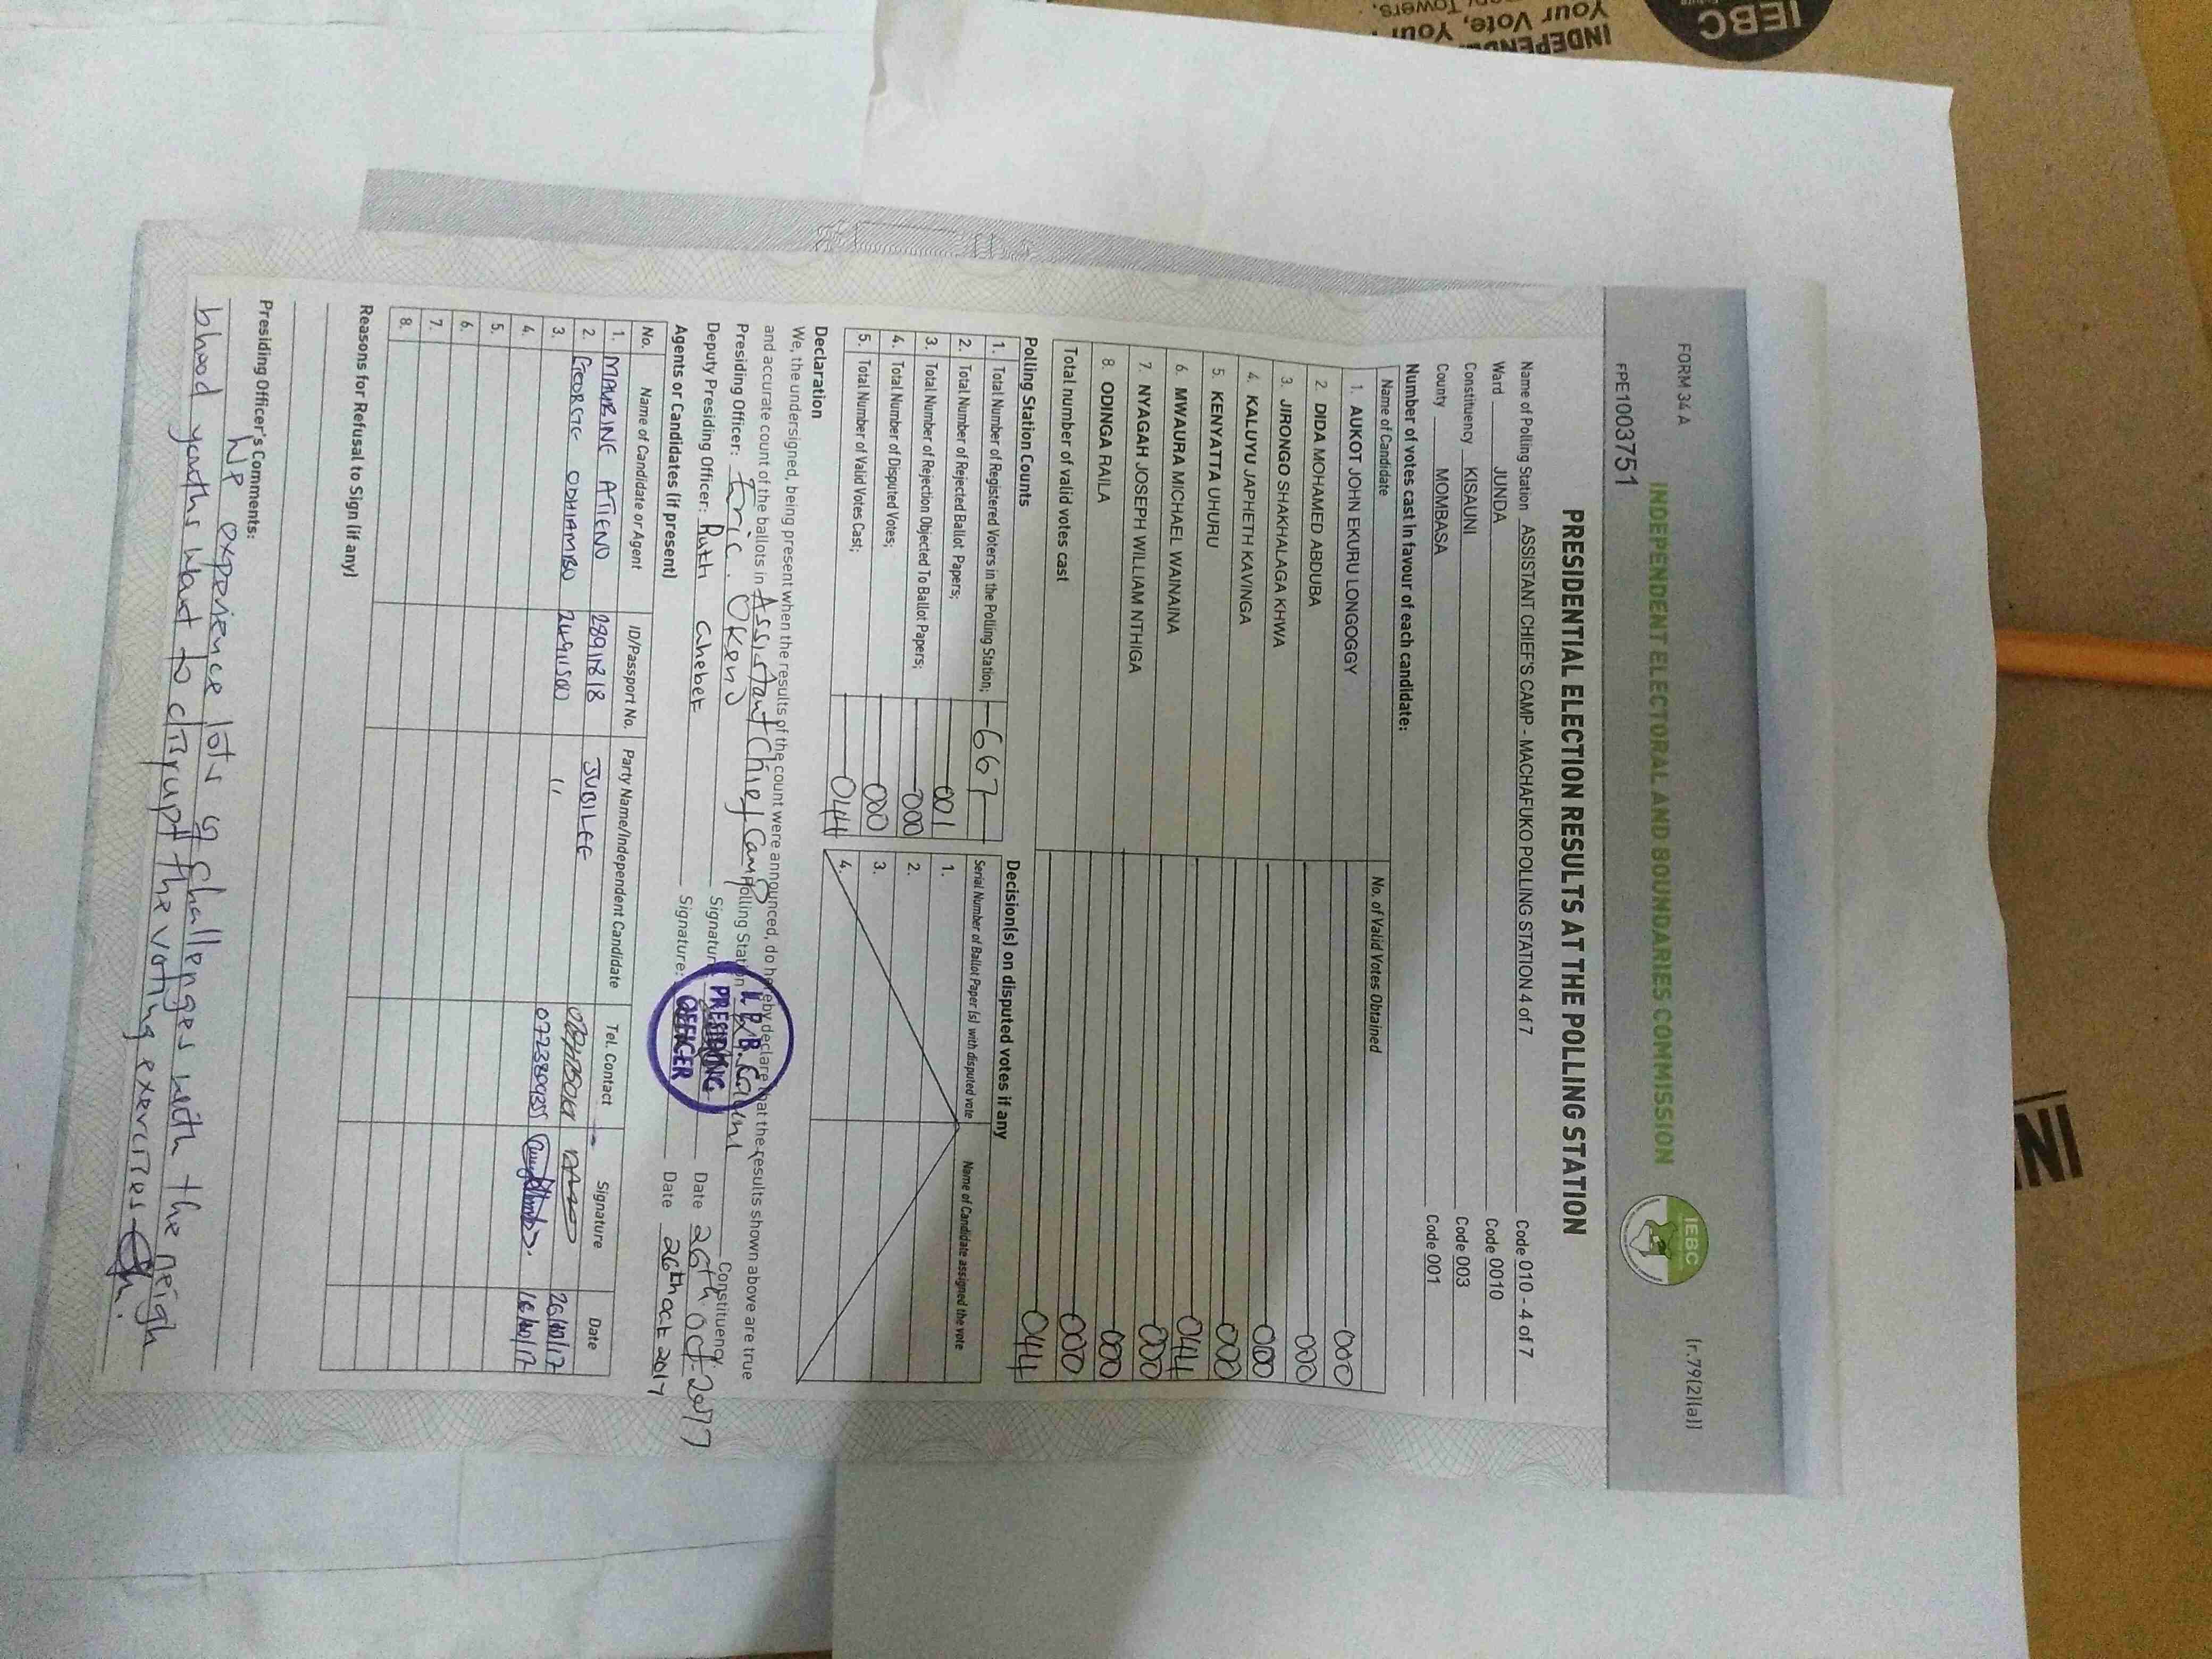 FORM 34 A
(r.79(2)(a))
INDEPENDENT ELECTORAL AND BOUNDARIES COMMISSION
IEBC
FPE1003751
PRESIDENTIAL ELECTION RESULTS AT THE POLLING STATION
Name of Polling Station ASSISTANT CHIEF'S CAMP - MACHAFUKO POLLING STATION 4 of 7 Code 010 - 4 of 7
Ward JUNDA Code 0010
Constituency KISAUNI Code 003
County MOMBASA Code 001
Number of votes cast in favour of each candidate:
Name of Candidate No. of Valid Votes Obtained
1. AUKOT JOHN EKURU LONGOGGY 000
2. DIDA MOHAMED ABDUBA 000
3. JIRONGO SHAKHALAGA KHWA 000
4. KALUYU JAPHETH KAVINGA 000
5. KENYATTA UHURU 044
6. MWAURA MICHAEL WAINAINA 000
7. NYAGAH JOSEPH WILLIAM NTHIGA 000
8. ODINGA RAILA 000
Total number of valid votes cast 044
Polling Station Counts
1. Total Number of Registered Voters in the Polling Station; 667
2. Total Number of Rejected Ballot Papers; 001
3. Total Number of Rejection Objected To Ballot Papers; 000
4. Total Number of Disputed Votes; 000
5. Total Number of Valid Votes Cast; 044
Decision(s) on disputed votes if any
Serial Number of Ballot Paper (s) with disputed vote Name of Candidate assigned the vote
1.
2.
3.
4.
Declaration
We, the undersigned, being present when the results of the count were announced, do hereby declare that the results shown above are true
and accurate count of the ballots in Assistant Chief Camp Polling Station Kisauni Constituency.
Presiding Officer: Eric. Okeno Signature Date 26th. Oct. 2017
Deputy Presiding Officer: Ruth Chebet Signature: Date 26th Oct 2017
PRESIDING
OFFICER
Agents or Candidates (if present)
No. Name of Candidate or Agent ID/Passport No. Party Name/Independent Candidate Tel. Contact Signature Date
1. MAURINE ATIENO 28911818 JUBILEE 26/10/17
2. GEORGE ODHIAMBO " 0723809135
3.
4.
5.
6.
7.
8.
Reasons for Refusal to Sign (if any)
Presiding Officer's Comments:
We experience lots of challenges with the neigh
bhood youths want to disrupt the voting exercises
IEBC
INDEPEND
Your Vote, Your
Towers,
IN